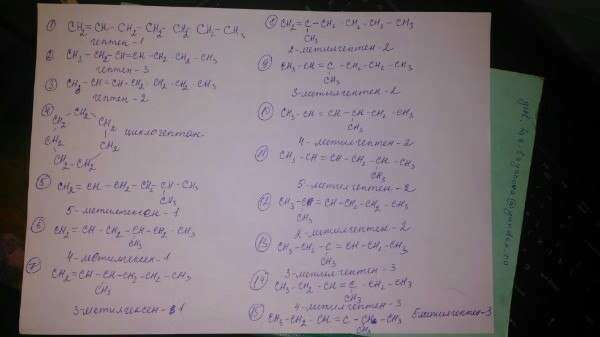 ① CH₂=CH-CH₂-CH₂-CH₂-CH₂-CH₃
гептен-1
② CH₃-CH₂-CH=CH-CH₂-CH₂-CH₃
гептен-3
③ CH₃-CH=CH-CH₂-CH₂-CH₂-CH₃
гептен-2
④ CH₂ CH₂
CH₂
CH₂ циклогептан
CH₂ CH₂
CH₂
⑤ CH₂=CH-CH₂-CH₂-CH-CH₃
CH₃
5-метилгексен-1
⑥ CH₂=CH-CH₂-CH-CH₂-CH₃
CH₃
4-метилгексен-1
⑦ CH₂=CH-CH-CH₂-CH₂-CH₃
CH₃
3-метилгексен-1
⑧ CH₂=C-CH₂-CH₂-CH₂-CH₃
CH₃
2-метилгептен-2
⑨ CH₃-CH=C-CH₂-CH₂-CH₃
CH₃
3-метилгептен-2
⑩ CH₃-CH=CH-CH-CH₂-CH₃
CH₃
4-метилгептен-2
⑪ CH₃-CH=CH-CH₂-CH-CH₃
CH₃
5-метилгептен-2
⑫ CH₃-C=CH-CH₂-CH₂-CH₃
CH₃
2-метилгептен-2
⑬ CH₃-CH₂-C=CH-CH₂-CH₃
CH₃
3-метилгептен-3
⑭ CH₃-CH₂-CH=C-CH₂-CH₃
CH₃
4-метилгептен-3
⑮ CH₃-CH₂-CH=C-CH₂-CH₃
CH₃
5метилгептен-3